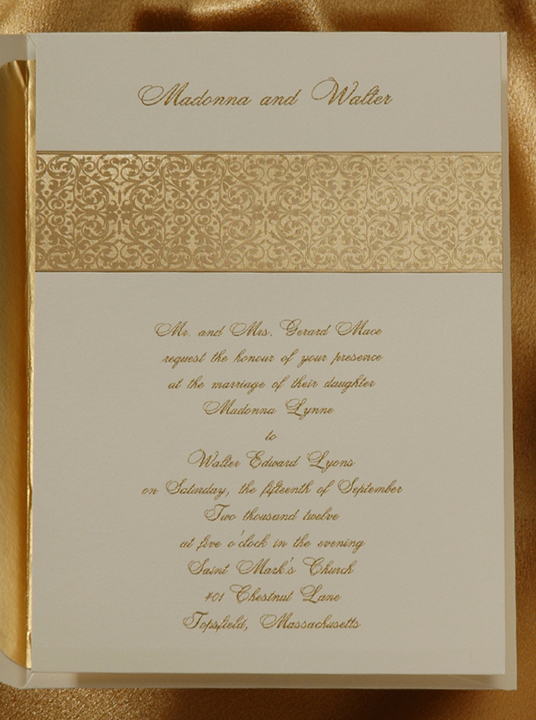 Madonna and Walter
Mr. and Mrs. Gerard Mace
request the honour of your presence
at the marriage of their daughter
Madonna Lynne
to
Walter Edward Lyons
on Saturday, the fifteenth of September
Two thousand twelve
at five o'clock in the evening
Saint Mark's Church
401 Chestnut Lane
Topsfield, Massachusetts